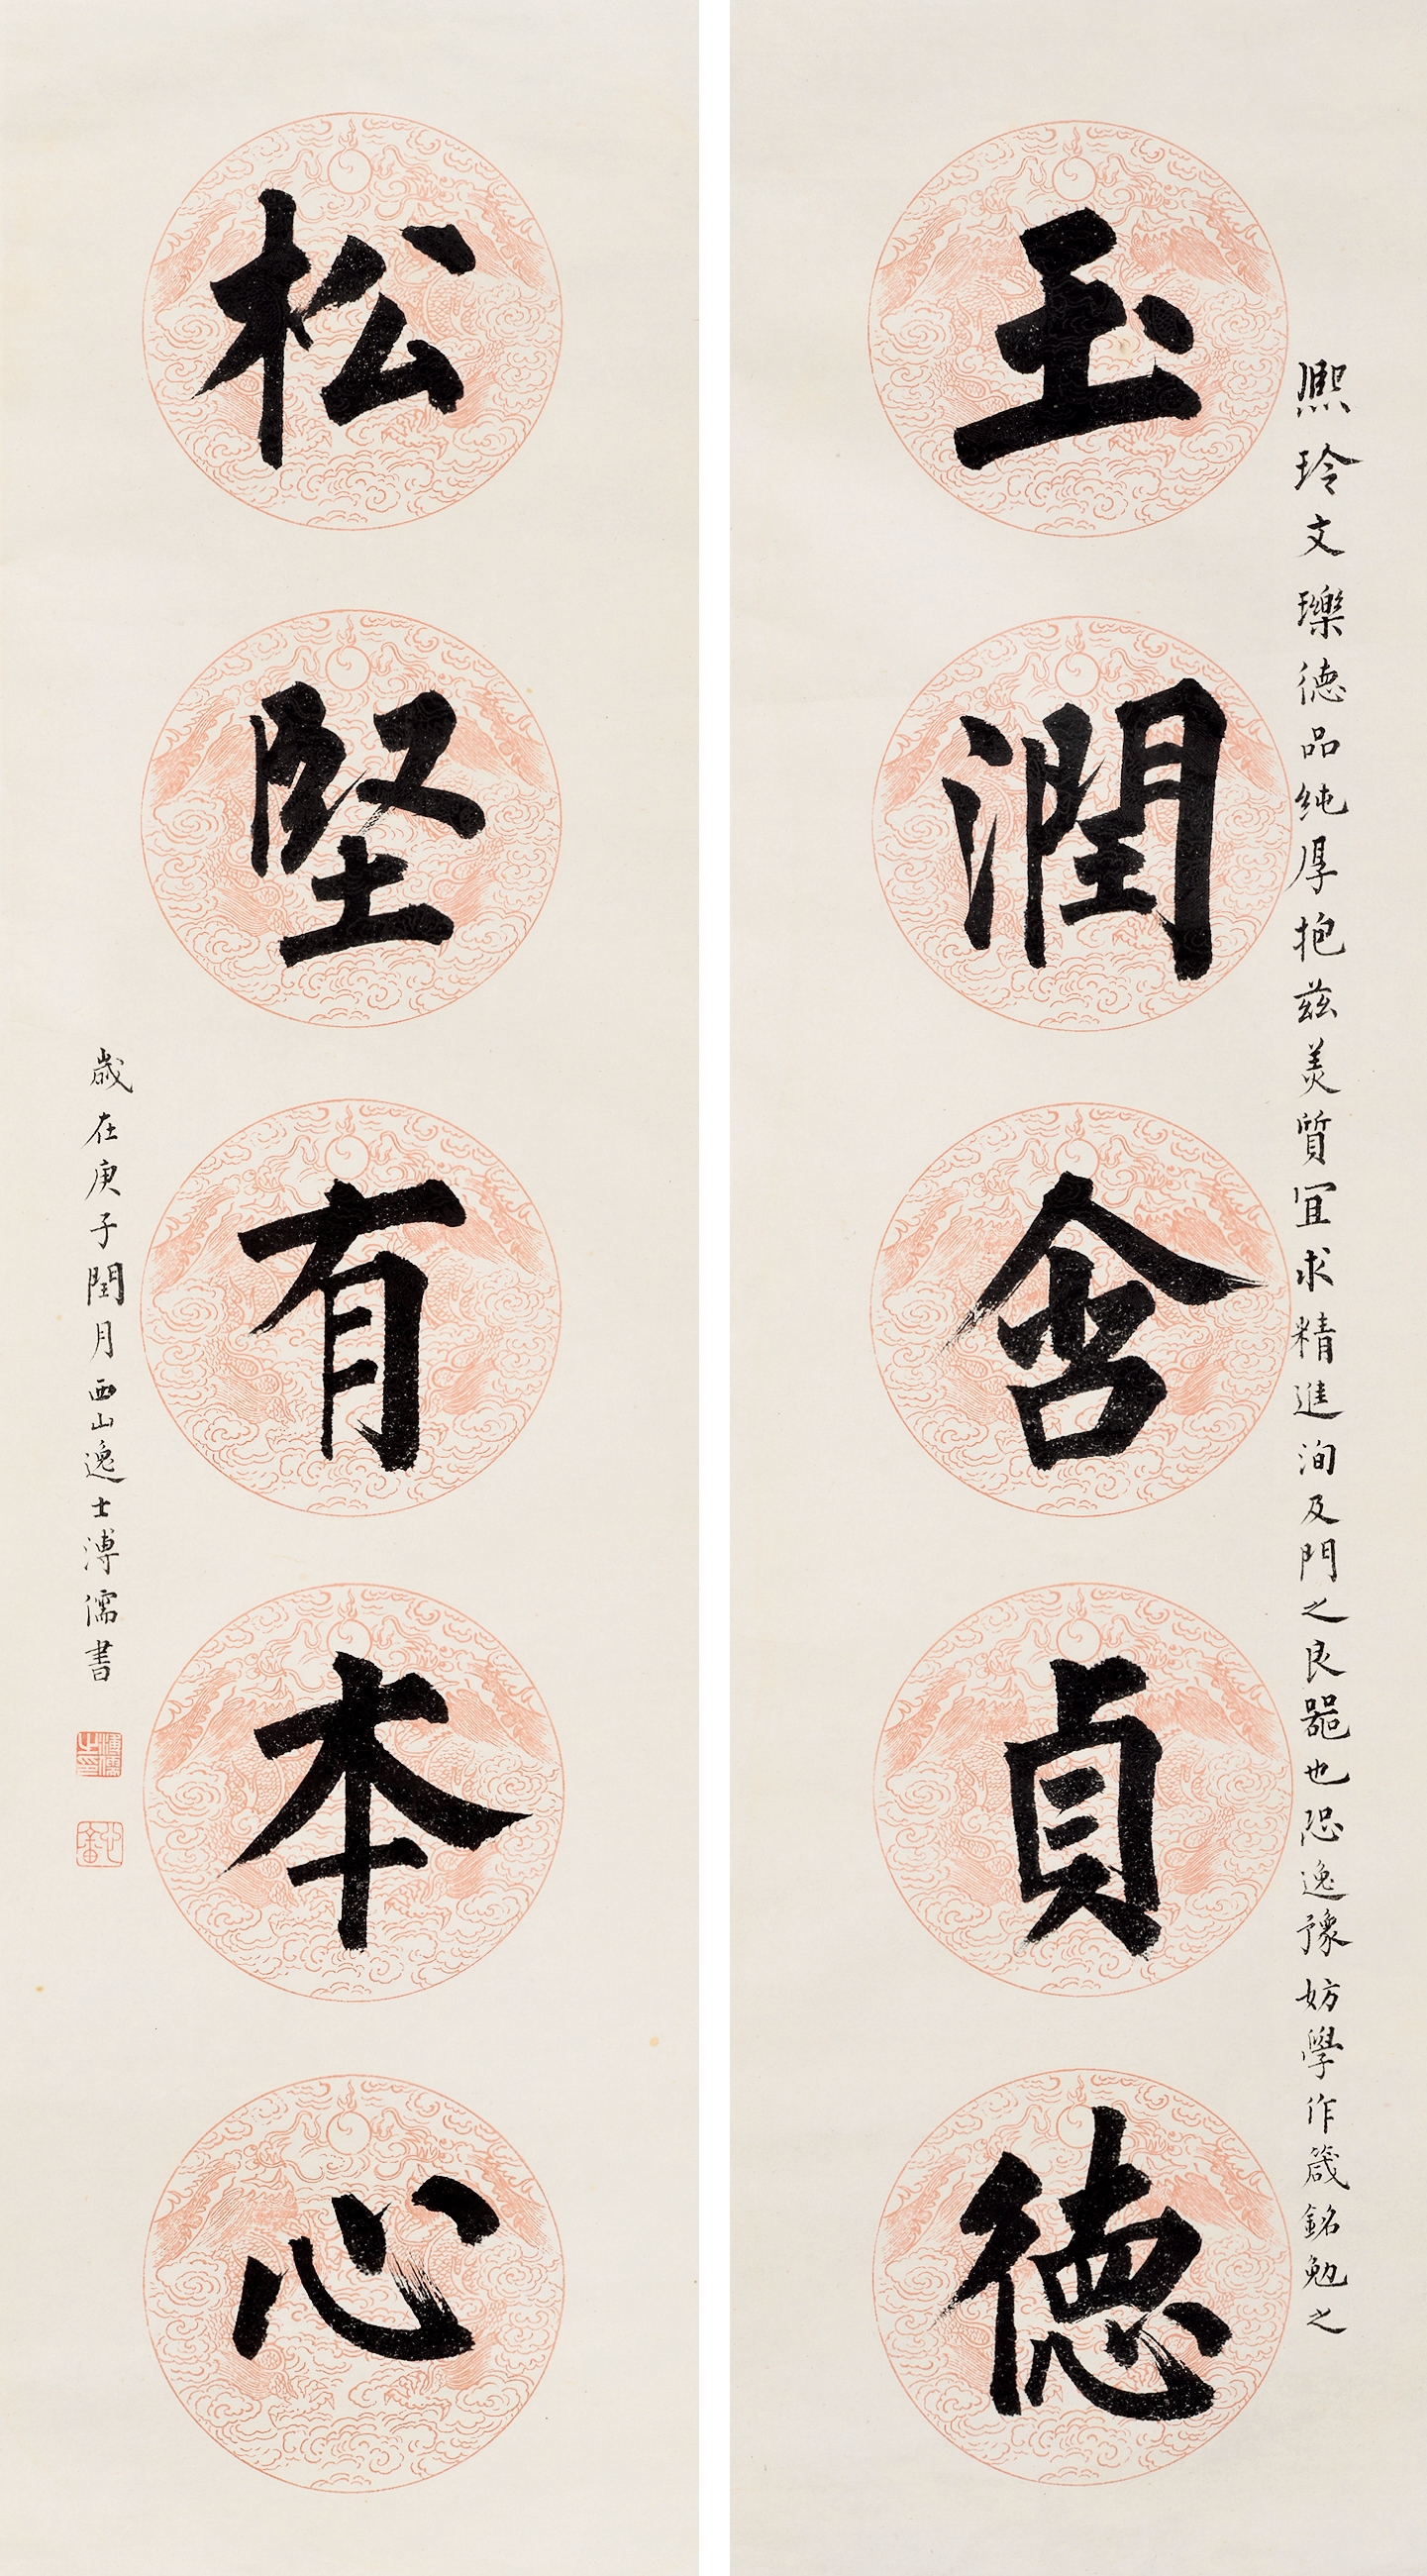 熙玲文瓅德品純厚抱茲美質宜求精進洵及門之良器也恐逸豫妨學作箴銘勉之
玉潤含貞德
松堅有本心
歲在庚子閏月西山逸士溥儒書
溥儒之印